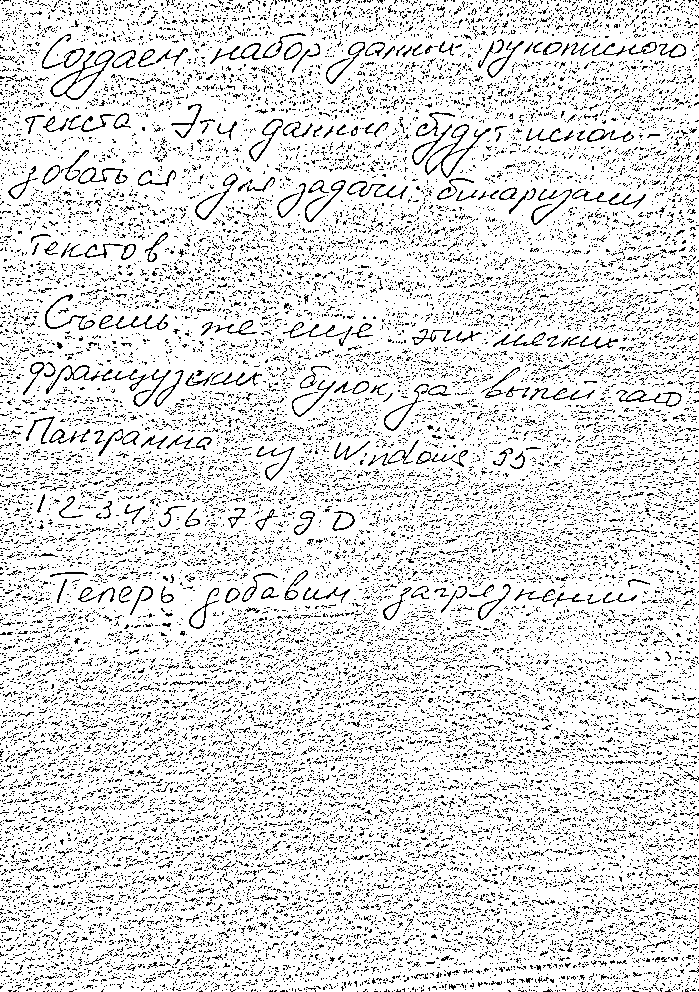 Создаем набор данных рукописного
текста. Эти данные будут исполь-
зоваться для задачи бинаризации
текстов
Съешь же ещё этих мягких
французских булок, да выпей чаю
Панграмма из Windows 95
1 2 3 4 5 6 7 8 9 0
Теперь добавим загрязнений